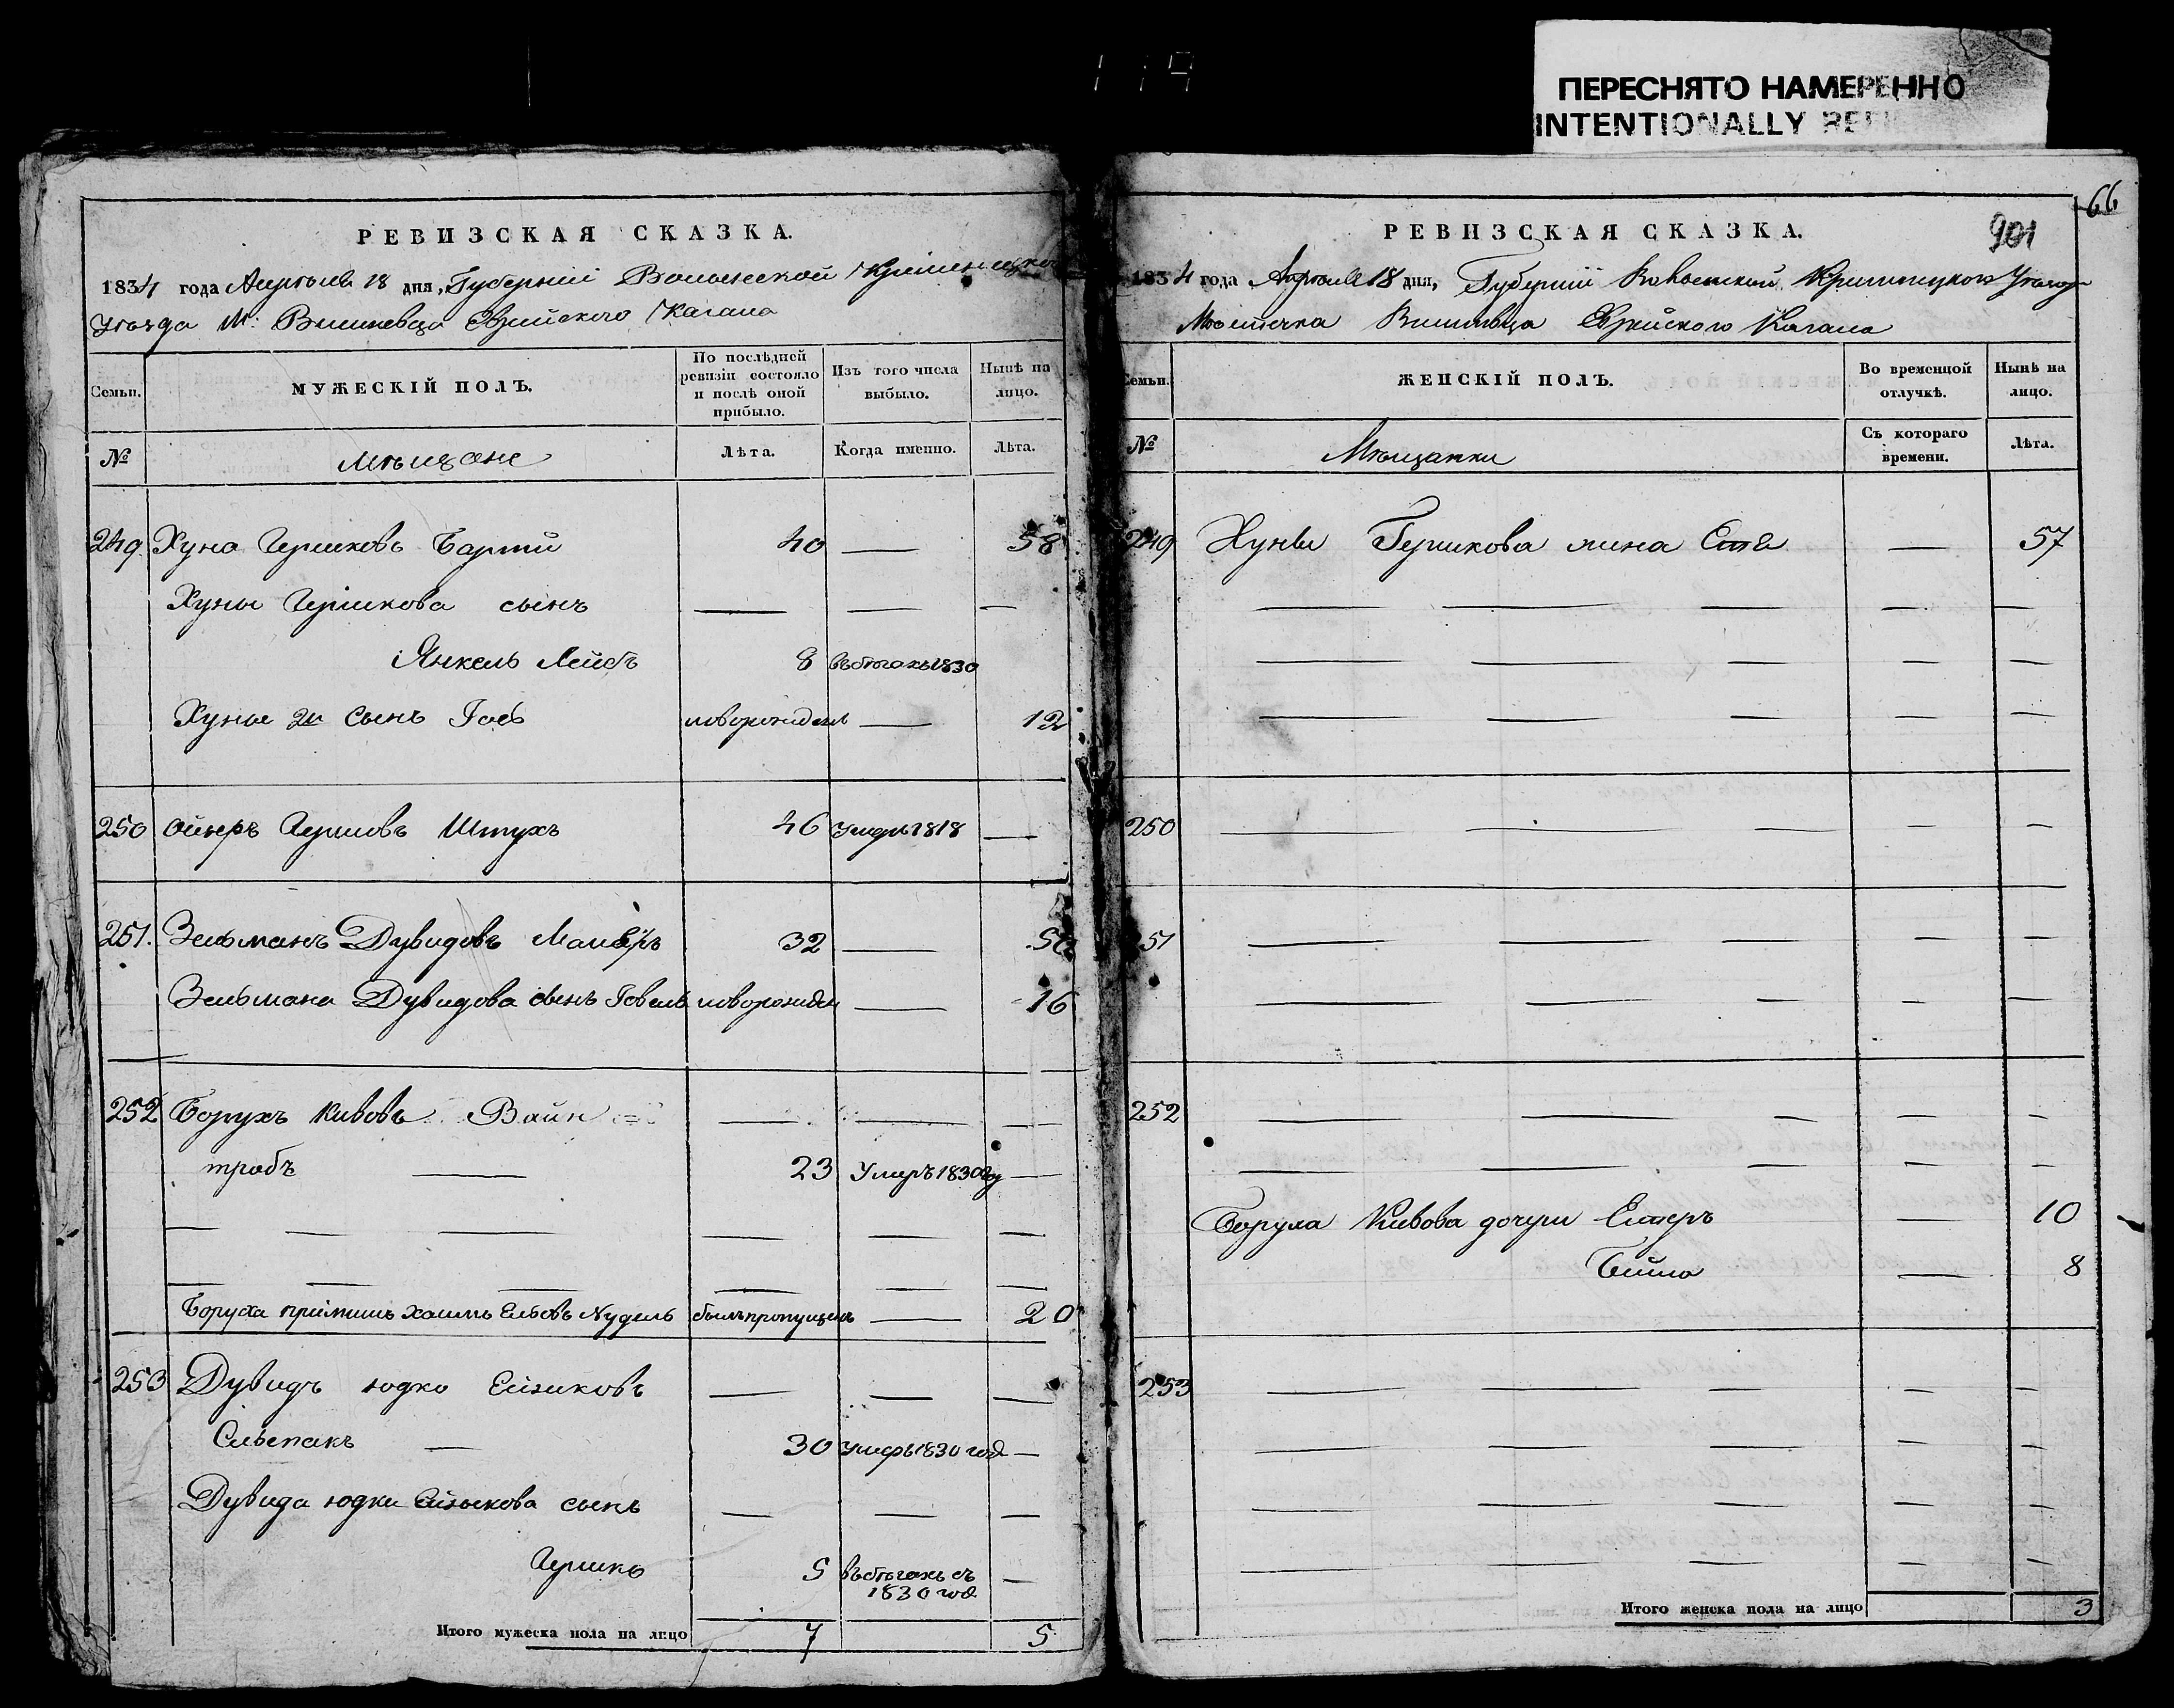 ПЕРЕСНЯТО НАМЕРЕННО
INTENTIONALLY
РЕВИЗСКАЯ СКАЗКА.
1834 года Апреля 18 дня, Губерніи Волынской Кременецкого
Уезда М: Вишневца Еврейского Кагала
Семьи. МУЖЕСКІЙ ПОЛЪ. По послѣдней ревизіи состояло и послѣ оной прибыло. Изъ того числа выбыло. Нынѣ на лицо.
№ Мѣщане Лѣта. Когда именно. Лѣта.
249 Хуна Гершковъ 40 — 58
Хуны Гершкова сынъ — — —
Янкель Лейбъ 8 въ бегахъ 1830
Хуны 2й сынъ Іось новорожден — 12
250 Ойзеръ Гершовъ Штухъ 46 Умеръ 1818 —
251. Зельманъ Дувидовъ 32 — 50
Зельмана Дувидова сынъ новорожден — 16
252 Борухъ Кивовъ Вайн= — — —
трабъ — 23 Умеръ 1830 —
— — — — — —
— — — — — —
Боруха пріймишъ Хаимъ Нудель былъ пропущенъ — 20
253 Дувидъ Юдко Ейзиковъ — — —
Слѣпакъ — 30 Умеръ 1830 год —
Дувида Юдки Ейзыкова сынъ — — —
Гершко 5 въ бегахъ съ —
1830 год
Итого мужеска пола на лицо 7 5
66
901
РЕВИЗСКАЯ СКАЗКА.
1834 года Апреля 18 дня, Губерніи Волынской Кременецкого Уезда
Мѣстечка Вишневца Еврейского Кагала
Семьи. ЖЕНСКІЙ ПОЛЪ. Во временной отлучкѣ. Нынѣ на лицо.
№ Мѣщанки Съ котораго времени. Лѣта.
249 Хуны Гершкова жина — 57
— — — — —
— — — — —
— — — — —
250 — — — — —
251 — — — — —
— — — — —
252 — — — — —
— — — — —
Боруха Кивова дочери Естеръ — 10
Бейла — 8
253 — — — — —
— — — — —
— — — — —
— — — — —
Итого женска пола на лицо 3